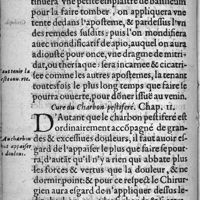 tinuera vne petite emplastre de basilicum
pour la faire tomber, on appliquera vne
tente dedans l'aposteme, & par dessus l'vn
des remedes susdits: puis l'on mondifiera
auec mondificatif de apio, auquel on aura
adiousté pour once, vne dragme de mitri-
dat, ou theriaca: & sera incarnee & cicatri-
see comme les autres apostemes, la tenant
toutesfois le plus long temps que faire se
pourra ouuerte, pour donner issuë au venin.
Cure du Charbon pestiferé. Chap. 11.
D'Autant que le charbon pestiferé est
ordinairement accōpagné de gran-
des & excessiues douleurs, il faut auoir es-
gard de l'appaiser le plus que faire se pour-
ra, d'autāt qu'il n'y a rien qui abbate plus
les forces & vertus que la douleur, & ne
dormir point: & pour ce respect le Chirur-
gien aura esgard de n'appliquer dessus le-
Faut tenir la
Au charbon
faut appaiser
la douleur.